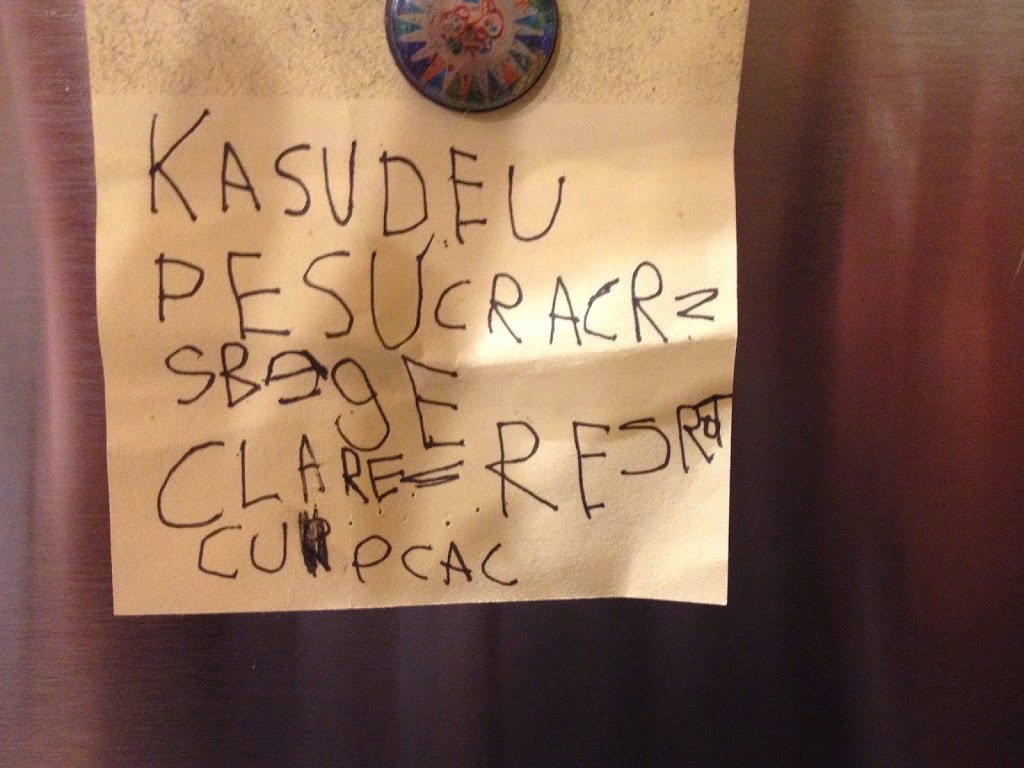 KASUDEU
PESUCRACRZ
SBAGE
CLARE = RESRT
CUPCAC